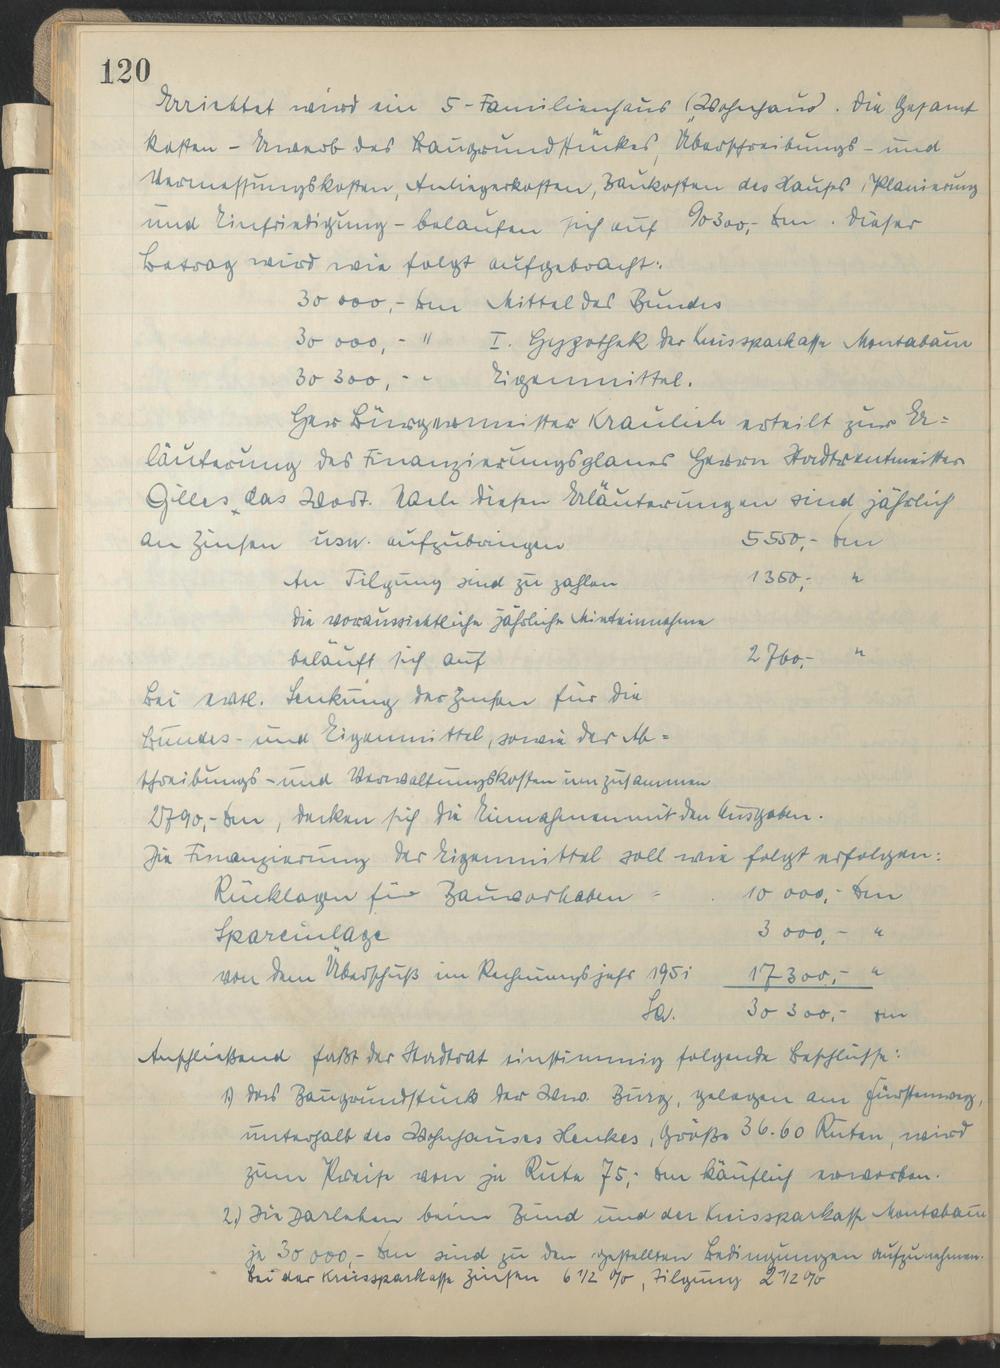 120
Errichtet wird ein 5-Familienhaus (Wohnhaus). Die Gesamt
kosten - Erwerb des Baugrundstückes, Überschreibungs- und
Vermessungskosten, Anliegerkosten, Baukosten des Hauses, Planierung
und Einfriedigung - belaufen sich auf 90300,- Dm. Dieser
Betrag wird wie folgt aufgebracht:
30 000,- Dm Mittel des Bundes
30 000,- " I. Hypothek der Kreissparkasse Montabaur
30 300,- " Eigenmittel.
Herr Bürgermeister Kraulich erteilt zur Er=
läuterung des Finanzierungsplanes Herrn Stadtrentmeister
Gilles das Wort. Nach diesen Erläuterungen sind jährlich
an Zinsen usw. aufzubringen 5550,- Dm
An Tilgung sind zu zahlen 1350,- "
die voraussichtliche jährliche Mieteinnahme
beläuft sich auf 2760,- "
Bei evtl. Senkung der Zinsen für die
Bundes- und Eigenmittel, sowie der Ab=
schreibungs- und Verwaltungskosten um zusammen
2790,- Dm, decken sich die Einnahmen mit den Ausgaben.
Die Finanzierung der Eigenmittel soll wie folgt erfolgen:
Rücklagen für Bauvorhaben = 10 000,- Dm
Spareinlage 3 000,- "
von dem Überschuß im Rechnungsjahr 1951 17 300,- "
Sa. 30 300,- Dm
Anschließend faßt der Stadtrat einstimmig folgende Beschlüsse:
1) das Baugrundstück der Wwe. Burg, gelegen am Fürstenweg,
unterhalb des Wohnhauses Henkes, Größe 36.60 Ruten, wird
zum Preise von je Rute 75,- Dm käuflich erworben.
2.) Die Darlehen beim Bund und der Kreissparkasse Montabaur
je 30 000,- Dm sind zu den gestellten Bedingungen aufzunehmen.
bei der Kreissparkasse Zinsen 6 1/2 %, Tilgung 2 1/2 %